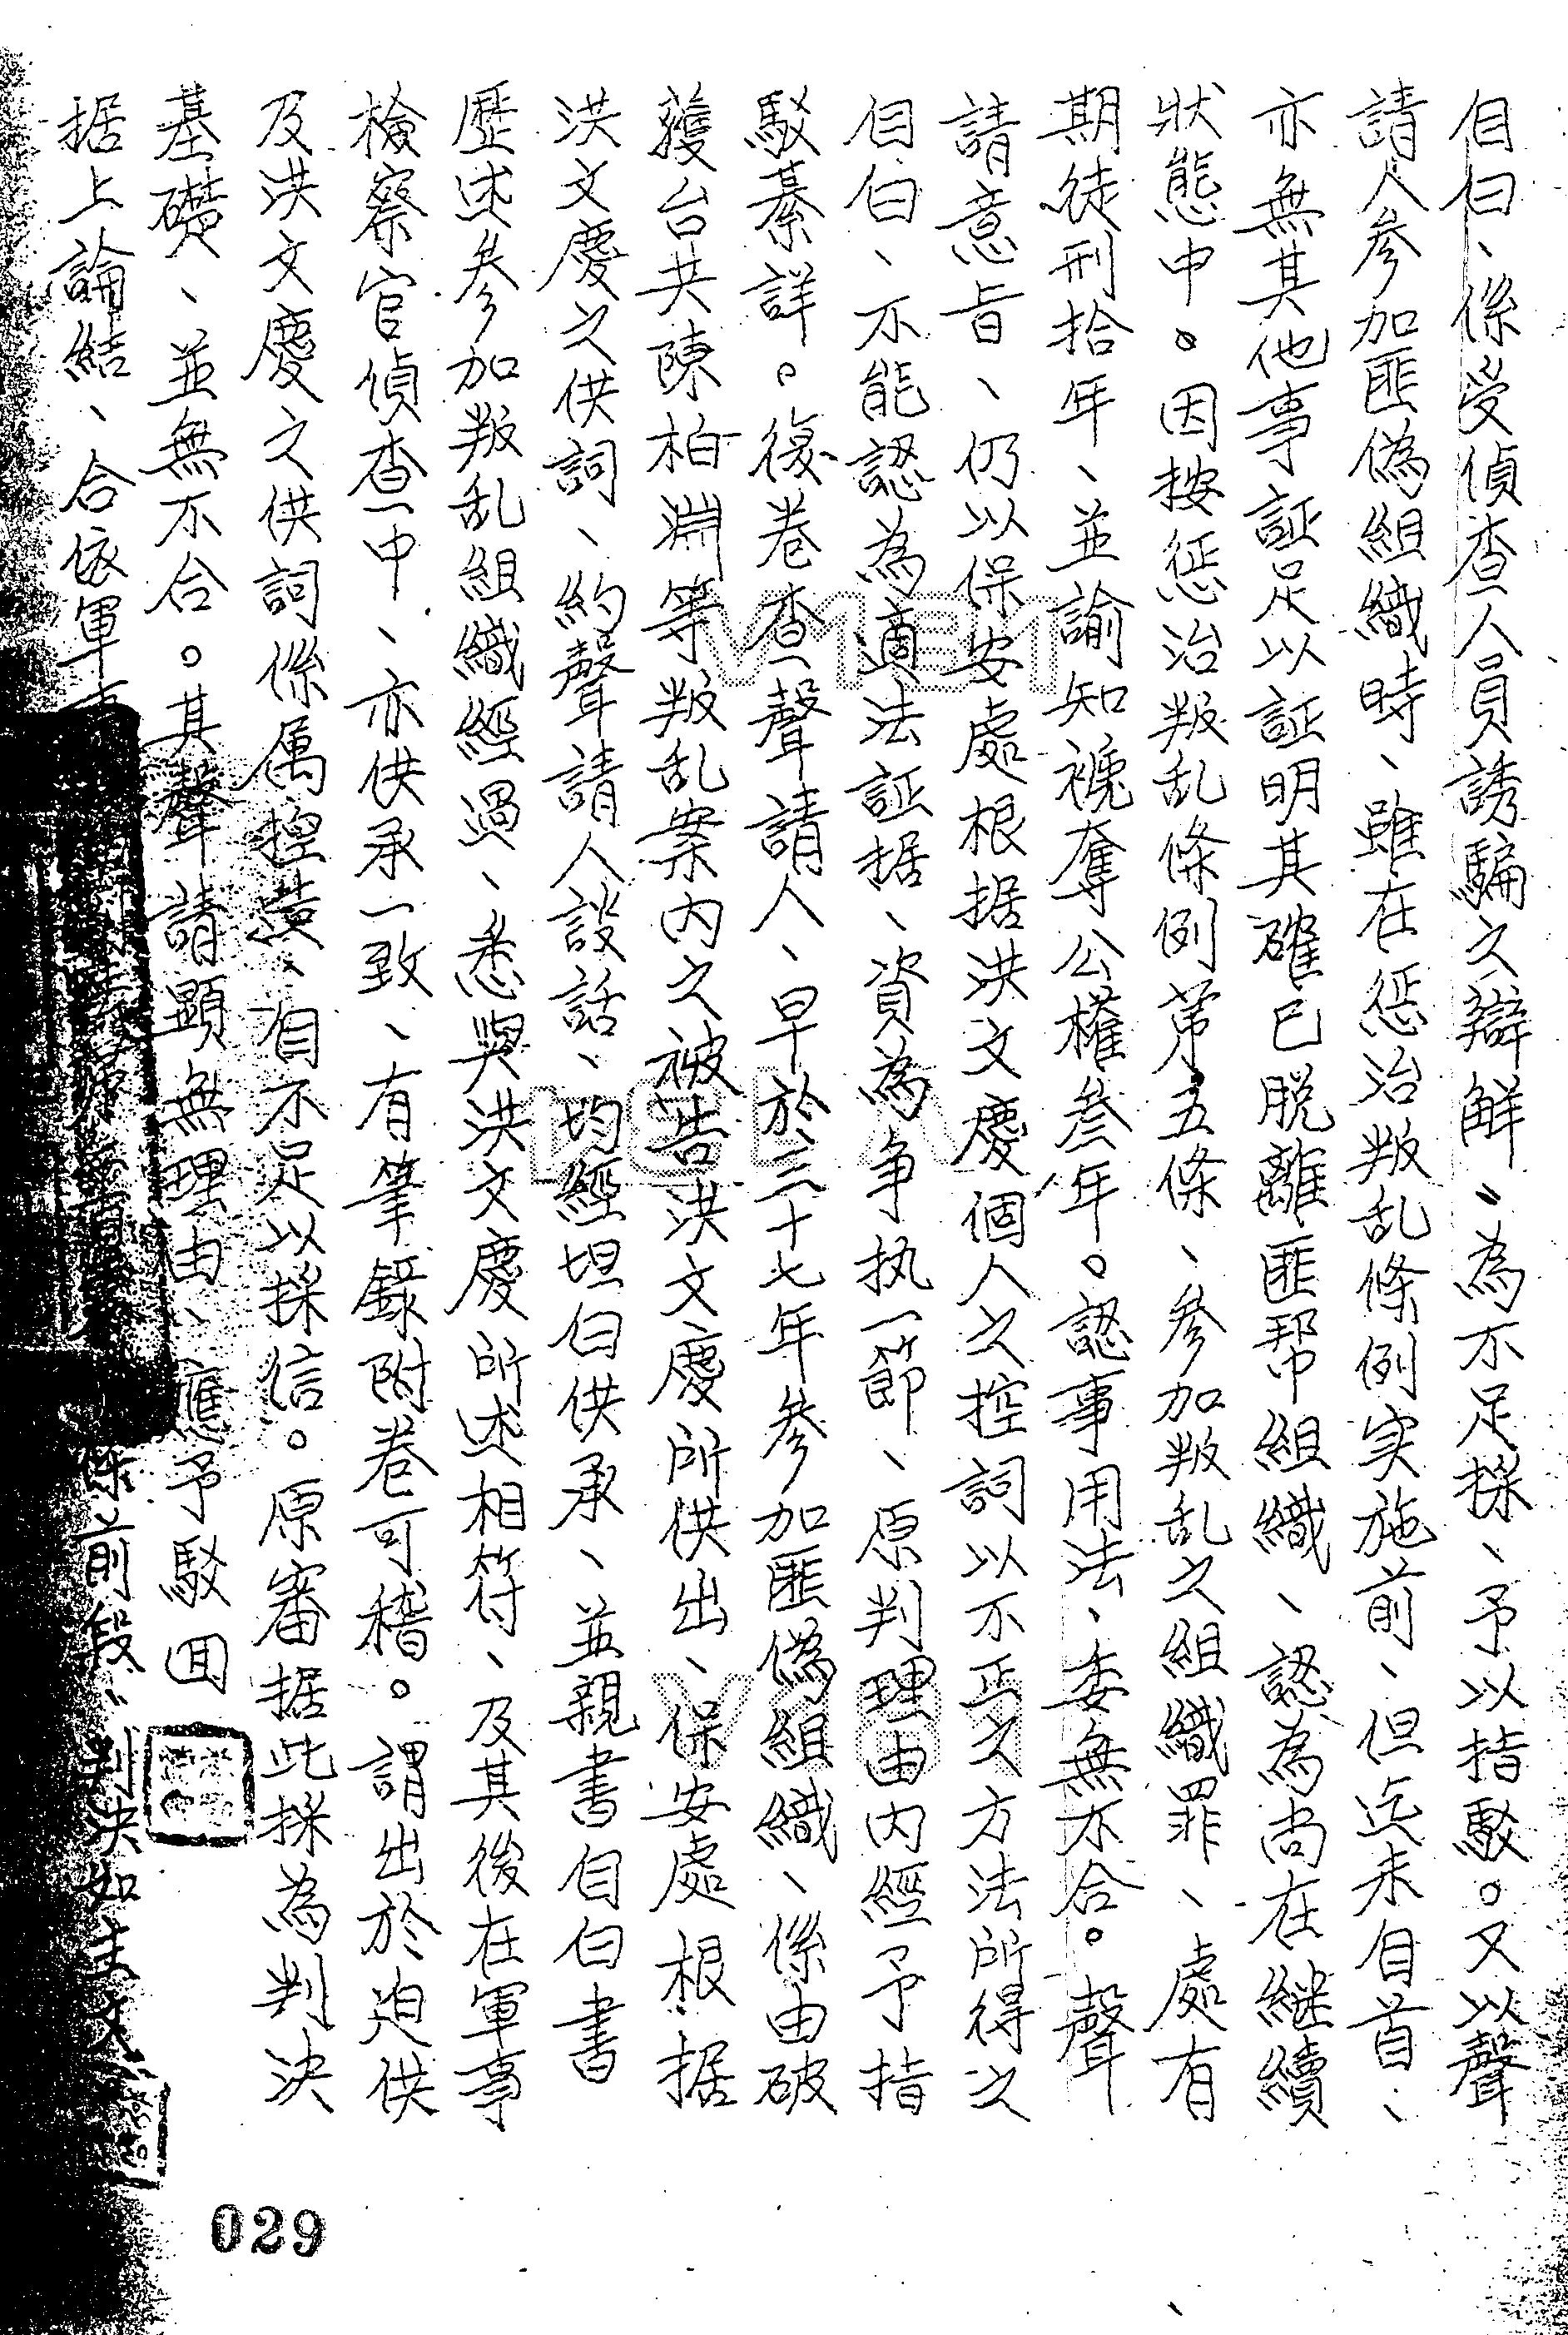 自白、係受偵查人員誘騙之辯解〞為不足採、予以指駁。又以聲
請人参加匪偽組織時、雖在惩治叛乱條例实施前、但迄未自首、
亦無其他事証足以証明其確已脱離匪帮組織、認為尚在継續
狀態中。因按惩治叛乱條例第五條、参加叛乱之組織罪、處有
期徒刑拾年、並諭知褫奪公權叁年。認事用法、委無不合。聲
請意旨、仍以保安處根据洪文慶個人之控詞以不正之方法所得之
自白、不能認為適法証据、資為争执一節、原判理由內經予指
駁綦詳。復卷查聲請人、早於三十七年参加匪偽組織、係由破
獲台共陳柏淵等叛乱案內之被告洪文慶所供出、保安處根据
洪文慶之供詞、約聲請人談話、均經坦白供承、並親書自白書
歷述参加叛乱組織經過、悉與洪文慶所述相符、及其後在軍事
檢察官偵查中、亦供承一致、有筆錄附卷可稽。謂出於迫供
及洪文慶之供詞係属捏造、自不足以採信。原審据此採為判決
基礎、並無不合。其聲請顯無理由、應予駁回
据上論結、合依軍事 條前段〝判決如主文
029